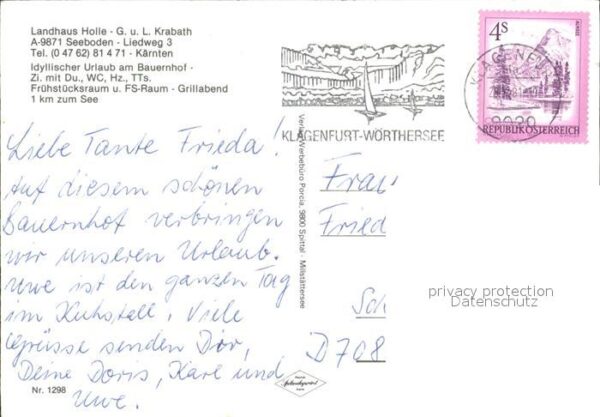 Landhaus Holle - G. u. L. Krabath
A-9871 Seeboden - Liedweg 3
Tel. (0 47 62) 81 4 71 - Kärnten
Idyllischer Urlaub am Bauernhof -
Zi. mit Du., WC, Hz., TTs.
Frühstücksraum u. FS-Raum - Grillabend
1 km zum See
KLAGENFURT-WÖRTHERSEE
KLAGENFU
9020
4S
REPUBLIK ÖSTERREICH
Liebe Tante Frieda!
Auf diesem schönen
Bauernhof verbringen
wir unseren Urlaub.
Uwe ist den ganzen Tag
im Kuhstall. Viele
Grüsse senden Dir,
Deine Doris, Karl und
Uwe.
Nr. 1298
Verlag Werbebüro Porcia, 9800 Spittal Millstättersee
Frau
Fried
Sch
D 708
privacy protection
Datenschutz